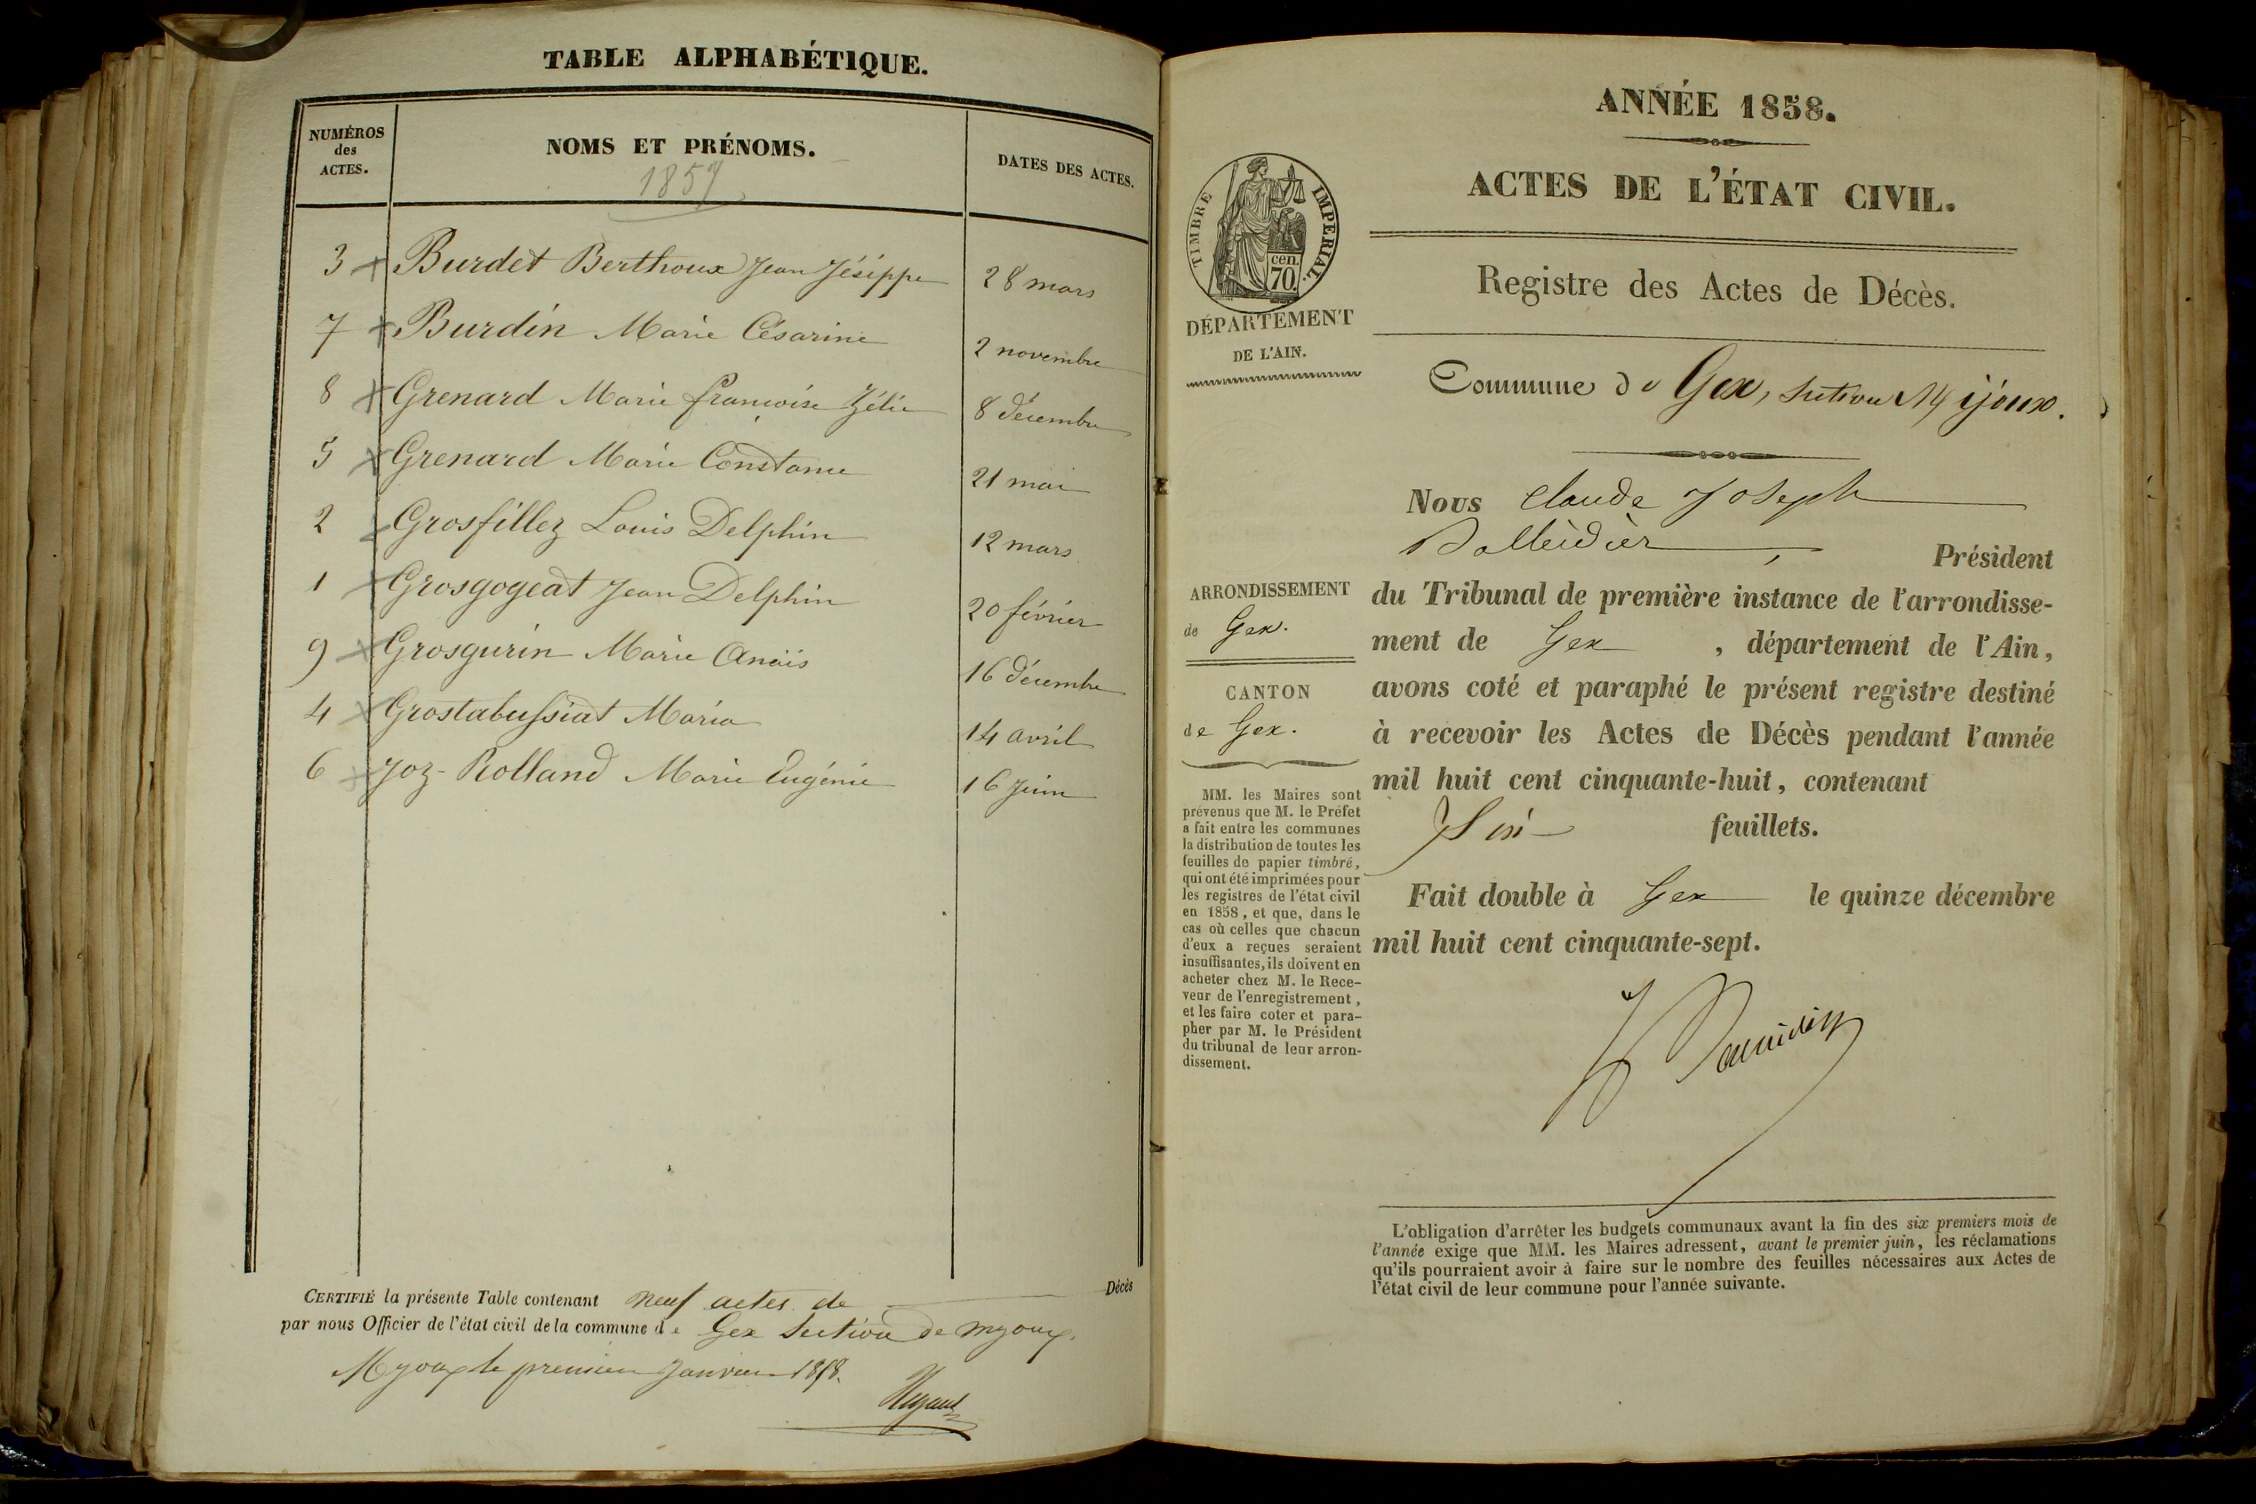 TABLE ALPHABÉTIQUE.
NUMÉROS
des
ACTES.
NOMS ET PRÉNOMS.
1857
DATES DES ACTES.
3 Burdet Berthoux Jean Jésippe 28 mars
7 Burdin Marie Césarine 2 novembre
8 Grenard Marie françoise Zélie 8 décembre
5 Grenard Marie Constance 21 mai
2 Grosfillez Louis Delphin 12 mars
1 Grosgogeat Jean Delphin 20 février
9 Grosgurin Marie Anaïs 16 décembre
4 Grostabussiat Maria 14 avril
6 Joz-Rolland Marie Eugénie 16 Juin
CERTIFIÉ la présente Table contenant neuf actes de Décès
par nous Officier de l'état civil de la commune de Gex Section de myoux.
Myoux le premier Janvier 1858.
ANNÉE 1858.
ACTES DE L'ÉTAT CIVIL.
TIMBRE IMPERIAL.
cen.
70.
DÉPARTEMENT
DE L'AIN.
Registre des Actes de Décès.
Commune de Gex, Section Mijoux.
Nous Claude Joseph
Balleidier, Président
du Tribunal de première instance de l'arrondisse-
ment de Gex, département de l'Ain,
avons coté et paraphé le présent registre destiné
à recevoir les Actes de Décès pendant l'année
mil huit cent cinquante-huit, contenant
Six feuillets.
Fait double à Gex le quinze décembre
mil huit cent cinquante-sept.
ARRONDISSEMENT
de Gex.
CANTON
de Gex.
MM. les Maires sont
prévenus que M. le Préfet
a fait entre les communes
la distribution de toutes les
feuilles de papier timbré,
qui ont été imprimées pour
les registres de l'état civil
en 1858, et que, dans le
cas où celles que chacun
d'eux a reçues seraient
insuffisantes, ils doivent en
acheter chez M. le Rece-
veur de l'enregistrement,
et les faire coter et para-
pher par M. le Président
du tribunal de leur arron-
dissement.
L'obligation d'arrêter les budgets communaux avant la fin des six premiers mois de
l'année exige que MM. les Maires adressent, avant le premier juin, les réclamations
qu'ils pourraient avoir à faire sur le nombre des feuilles nécessaires aux Actes de
l'état civil de leur commune pour l'année suivante.